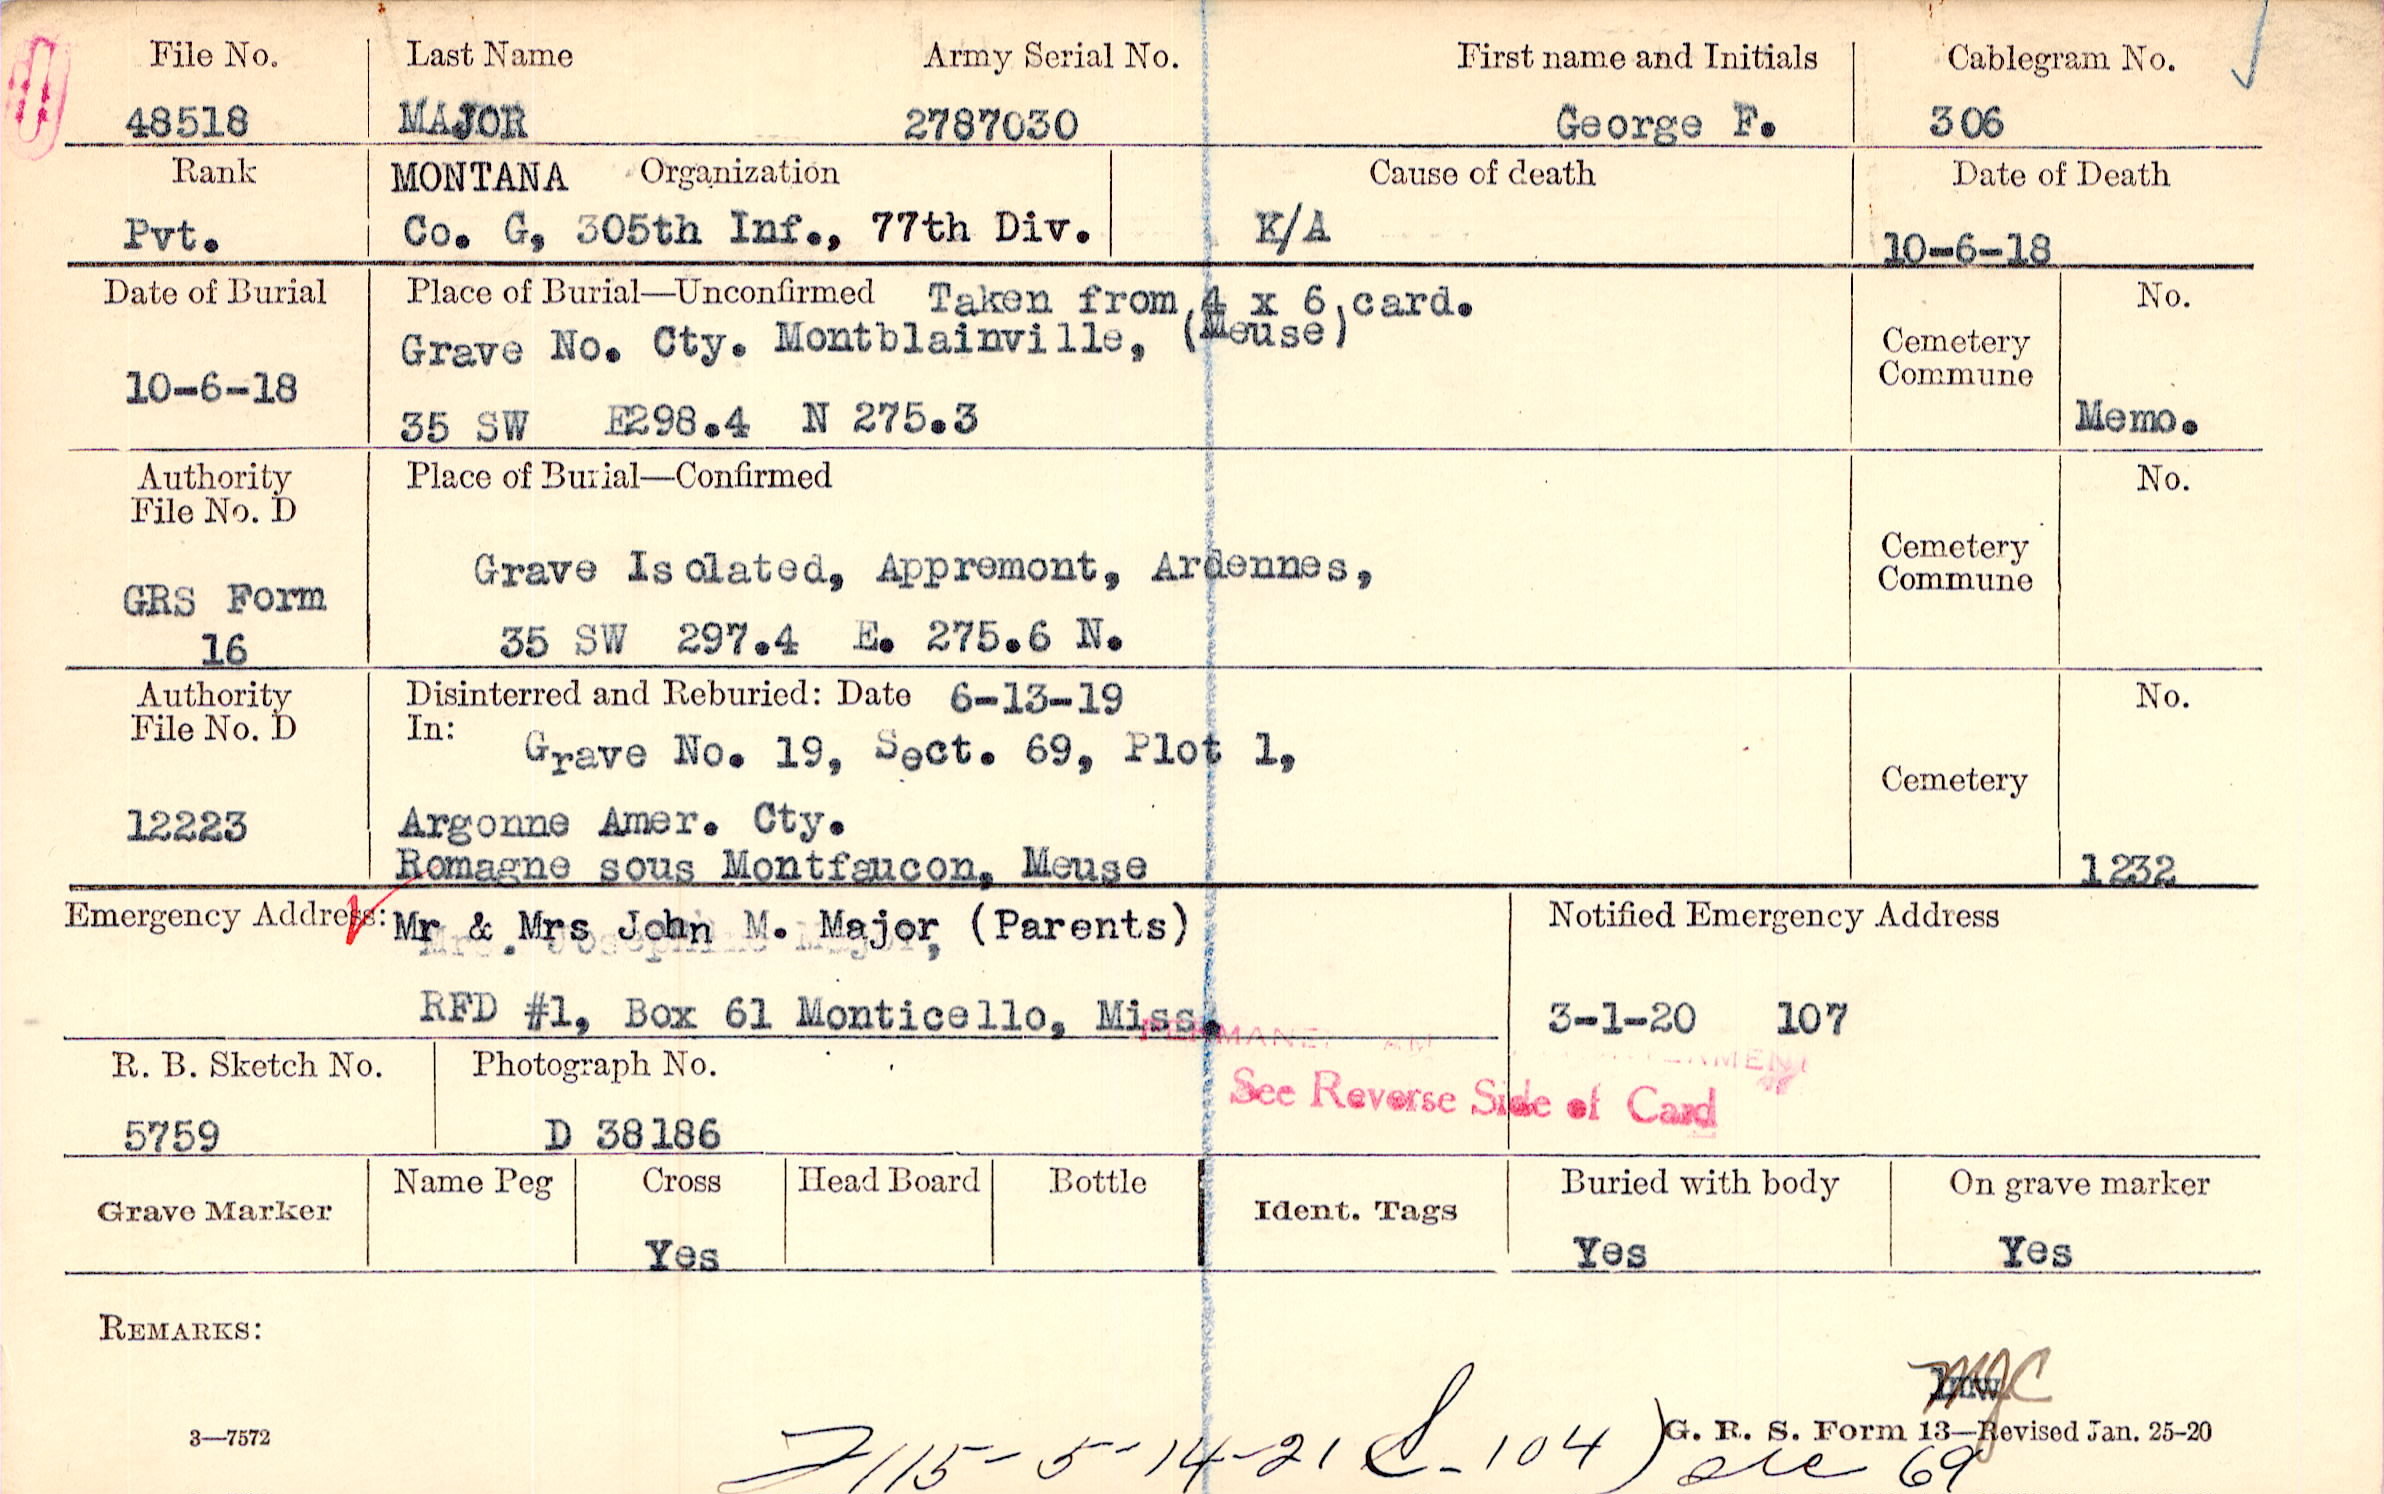 File No. Last Name Army Serial No. First name and Initials Cablegram No.
48518 MAJOR 2787030 George F. 306
Rank MONTANA Organization Cause of death Date of Death
Pvt. Co. G, 305th Inf., 77th Div. K/A 10-6-18
Date of Burial Place of Burial—Unconfirmed Taken from 4 x 6 card. No.
Grave No. Cty. Montblainville, (Meuse) Cemetery
10-6-18 Commune
35 SW E298.4 N 275.3 Memo.
Authority Place of Burial—Confirmed No.
File No. D
Grave Isolated, Appremont, Ardennes, Cemetery
GRS Form Commune
16 35 SW 297.4 E. 275.6 N.
Authority Disinterred and Reburied: Date 6-13-19 No.
File No. D In:
Grave No. 19, Sect. 69, Plot 1, Cemetery
12223 Argonne Amer. Cty.
Romagne sous Montfaucon, Meuse 1232
Emergency Address: Mr & Mrs John M. Major, (Parents) Notified Emergency Address
Mrs. Josephine Major,
RFD #1, Box 61 Monticello, Miss. 3-1-20 107
R. B. Sketch No. Photograph No.
See Reverse Side of Card
5759 D 38186
Grave Marker Name Peg Cross Head Board Bottle Ident. Tags Buried with body On grave marker
Yes Yes Yes
REMARKS:
3—7572 G. R. S. Form 13—Revised Jan. 25-20
115-5-14-21 104) 69